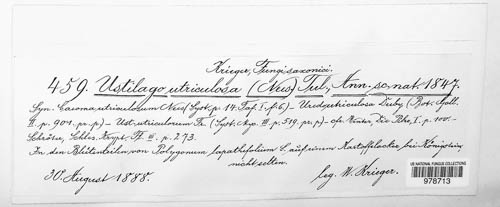 Krieger, Fungi saxonici.
459. Ustilago utriculosa (Nees) Tul., Ann. sc. nat. 1847.
Syn. Caeoma utriculosum Nees (Syst. p. 14. Taf. I. f. 6) – Uredo utriculosa Duby (Bot. Gall.
II. p. 901. pr. p.) – Ust. utriculorum Fr. (Syst. Myc. III. p. 519. pr. p.) – cfr. Winter, Die Pilze, I. p. 100. –
Schröter, Schles. Krypt. Fl. III. p. 273.
In den Blütenteilen von Polygonum lapathifolium L. auf einem Kartoffelacker bei Königstein
nicht selten.
30. August 1888.
leg. W. Krieger.
US NATIONAL FUNGUS COLLECTIONS
978713